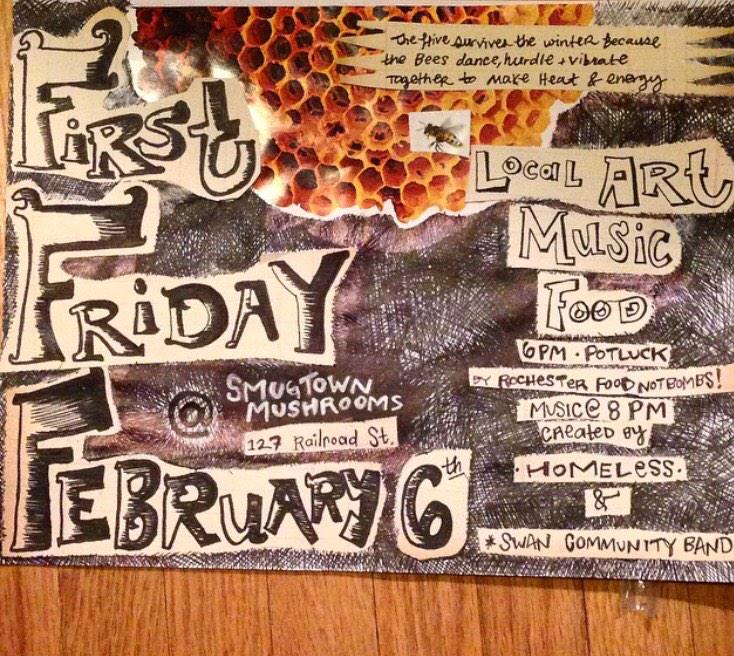 First
Friday
February 6th
@ SMUGTOWN
MUSHROOMS
127 Railroad St.
The Hive Survives the winter Because
the Bees dance, hurdle + vibrate
Together to make Heat & energy
Local Art
Music
Food
6PM · POTLUCK
BY ROCHESTER FOOD NOT BOMBS!
MUSIC @ 8 PM
CREATED BY
· HOMELESS ·
&
* SWAN COMMUNITY BAND